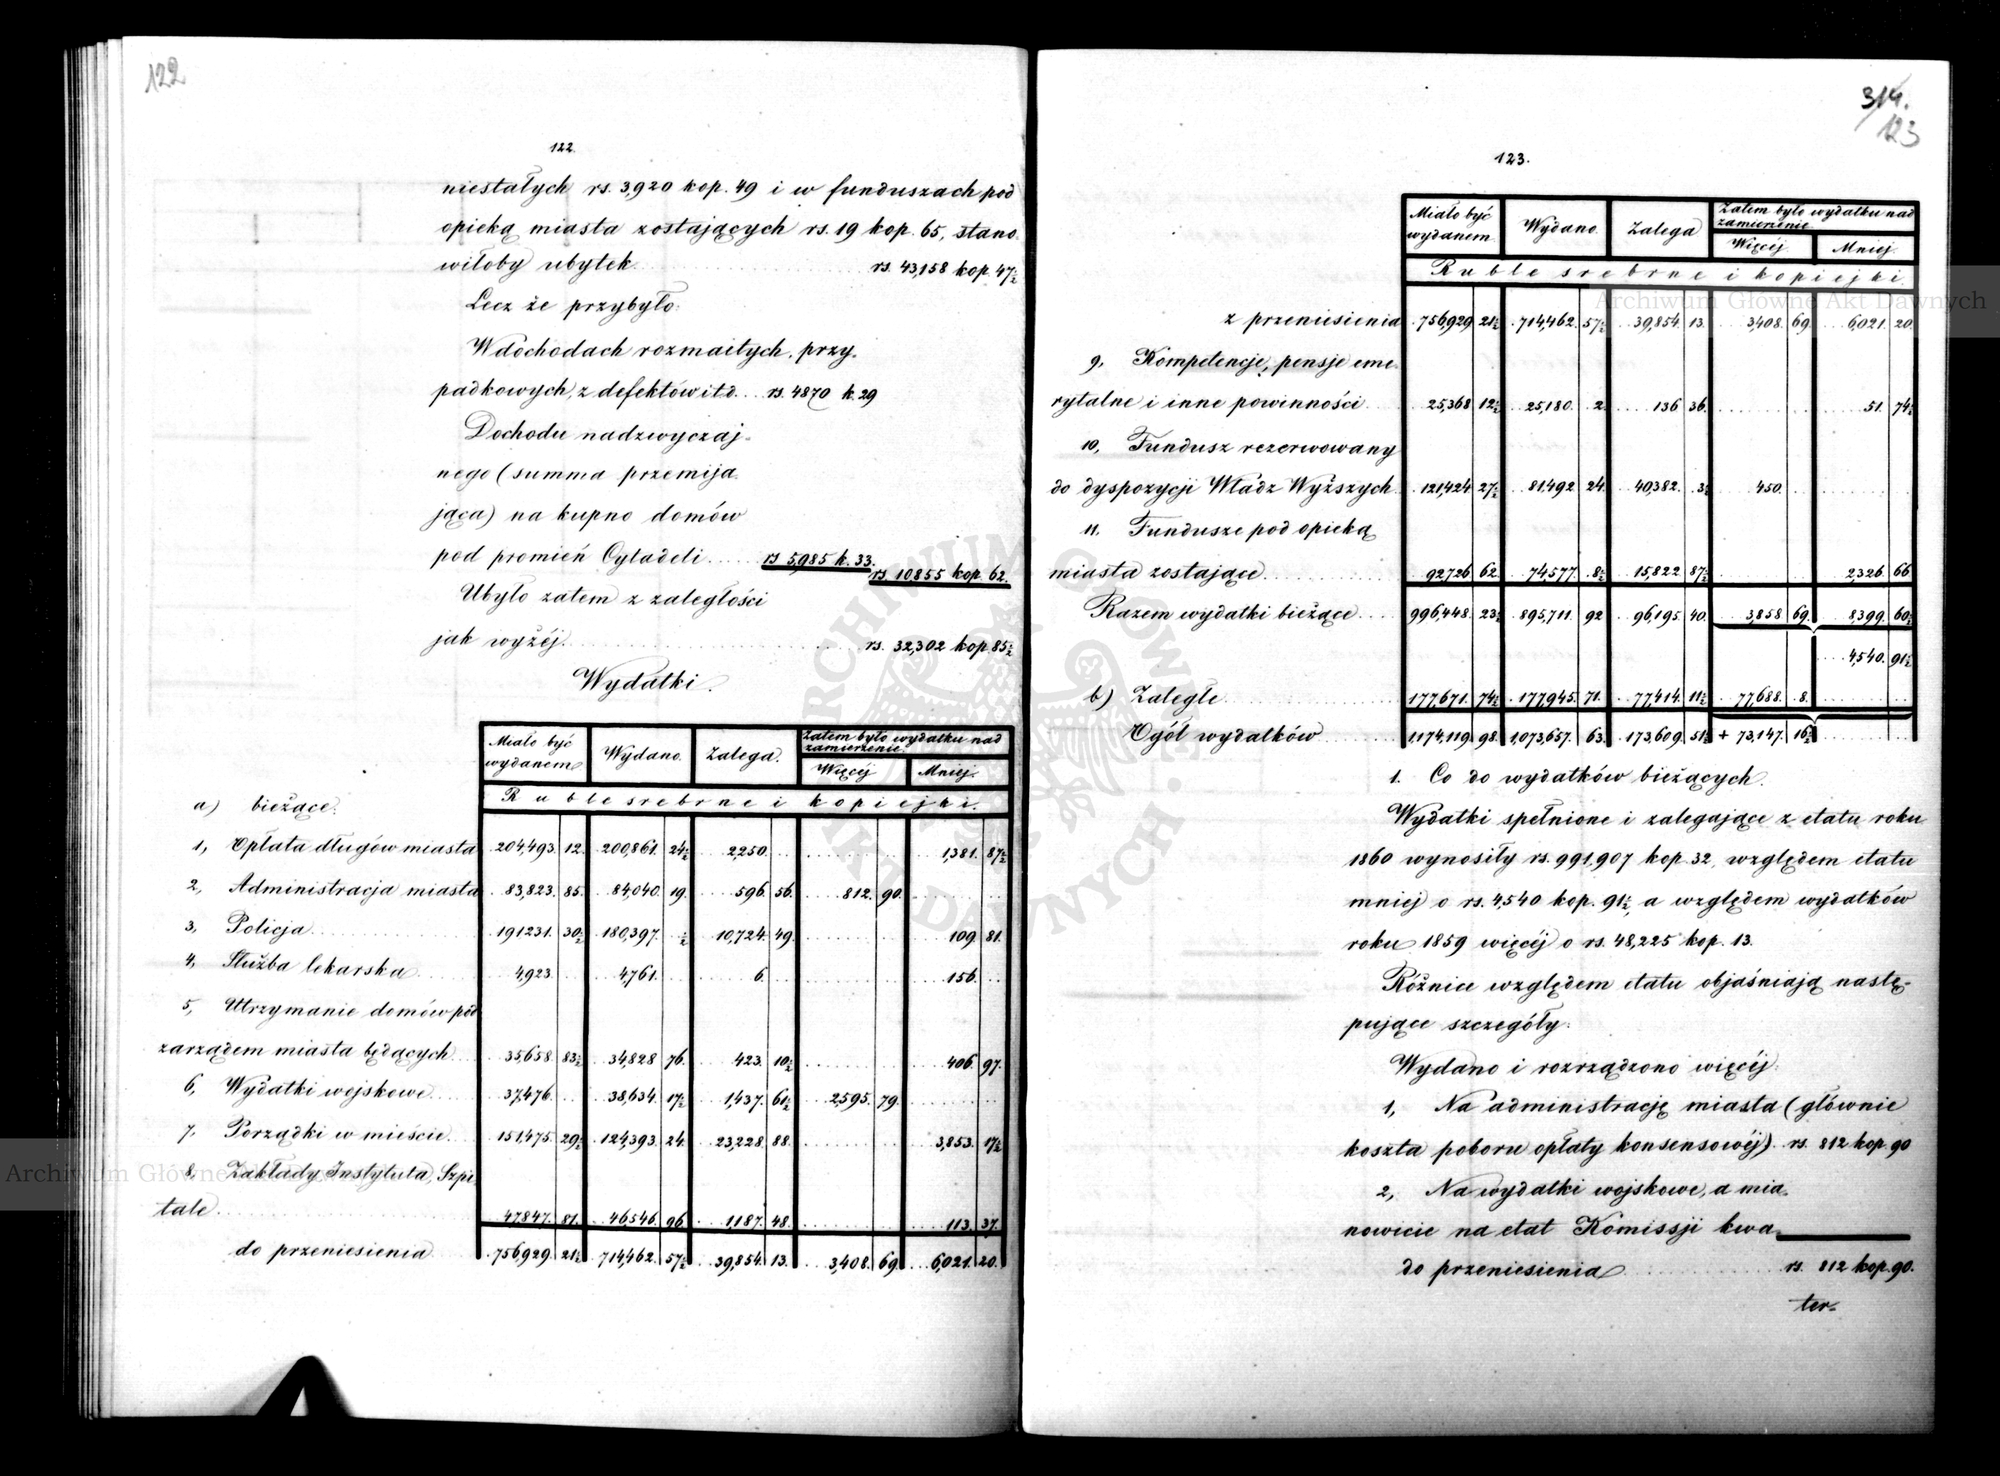 122
122.
niestałych rs. 3,920 kop. 49 i w funduszach pod
opieką miasta zostających rs. 19 kop. 65, stano
wiłoby ubytek rs. 43,158 kop. 47½
Lecz że przybyło:
W dochodach rozmaitych, przy-
padkowych, z defektów itd. rs. 4870 k. 29
Dochodu nadzwyczaj-
nego (summa przemija
jąca) na kupno domów
pod promień Cytadeli rs 5,985 k. 33.
rs 10855 kop. 62.
Ubyło zatem z zaległości
jak wyżéj. rs. 32,302 kop 85½
Wydatki.
Miało być wydanem | Wydano | Zalega. | Zatem było wydatku nad zamierzenie
Więcéj | Mniej.
Ruble srebrne i kopiejki.
a) bieżące.
1, Opłata długów miasta 204,493. 12. | 200,861. 24½ | 2,250. | | 1,381. 87½
2, Administracja miasta 83,823. 85. | 84,040. 19. | 596. 56. | 812. 90. |
3, Policja 191231. 30½ | 180,397. ½ | 10,724. 49. | | 109. 81.
4, Służba lekarska 4,923. | 4,761. | 6. | | 156.
5, Utrzymanie domów pod
zarządem miasta będących 35,658. 83½ | 34,828 76. | 423. 10½ | | 406. 97.
6, Wydatki wojskowe 37,476. | 38,634. 17½ | 1,437. 61½ | 2,595. 79. |
7, Porządki w mieście 151,475. 29½ | 124,393. 24. | 23,228. 88. | | 3,853. 17½
8, Zakłady Instytuta, Szpi
tale 47847. 81. | 46,546. 96 | 1187. 48. | | 113. 37.
do przeniesienia 756929. 21½ | 714,462. 57½ | 39,854. 13. | 3,408. 69. | 6,021. 20.
314.
123
123.
Miało być wydanem | Wydano. | Zalega | Zatem było wydatku nad zamierzenie
Więcéj | Mniej
Ruble srebrne i kopiejki.
z przeniesienia 756,929 21½ | 714,462. 57½ | 39,854. 13. | 3,408. 69. | 6,021. 20.
9, Kompetencje, pensje eme-
rytalne i inne powinności 25,368 12½ | 25,180. 2. | 136 36. | | 51. 74½
10, Fundusz rezerwowany
do dyspozycji Władz Wyższych 121,424. 27½ | 81,492 24. | 40,382. 3½ | 450. |
11. Fundusze pod opieką
miasta zostające 92,726 62. | 74577. 8½ | 15,822. 87½ | | 2,326. 66.
Razem wydatki bieżące 996,448. 23½ | 895,711. 92 | 96,195. 40. | 3,858 69. | 8,399. 60½
4,540. 91½
b) Zaległe 177,671. 74½ | 177,945. 71. | 77,414. 11½ | 77,688. 8. |
Ogół wydatków 1,174,119 98. | 1,073,657. 63. | 173,609. 51½ | + 73,147. 16½ |
1. Co do wydatków bieżących.
Wydatki spełnione i zalegające z etatu roku
1860 wynosiły rs. 991,907 kop. 32, względem etatu
mniej o rs. 4,540 kop. 91½, a względem wydatków
roku 1859 więcéj o rs. 48,225 kop. 13.
Różnice względem etatu objaśniają nastę-
pujące szczegóły:
Wydano i rozrządzono więcéj:
1, Na administrację miasta (głównie
koszta poboru opłaty konsensowéj) rs. 812 kop. 90
2, Na wydatki wojskowe, a mia-
nowicie na etat Komissji kwa-
do przeniesienia rs. 812 kop. 90.
ter-
Archiwum Główne Akt Dawnych
Archiwum Główne
ARCHIWUM GŁÓWNE AKT DAWNYCH